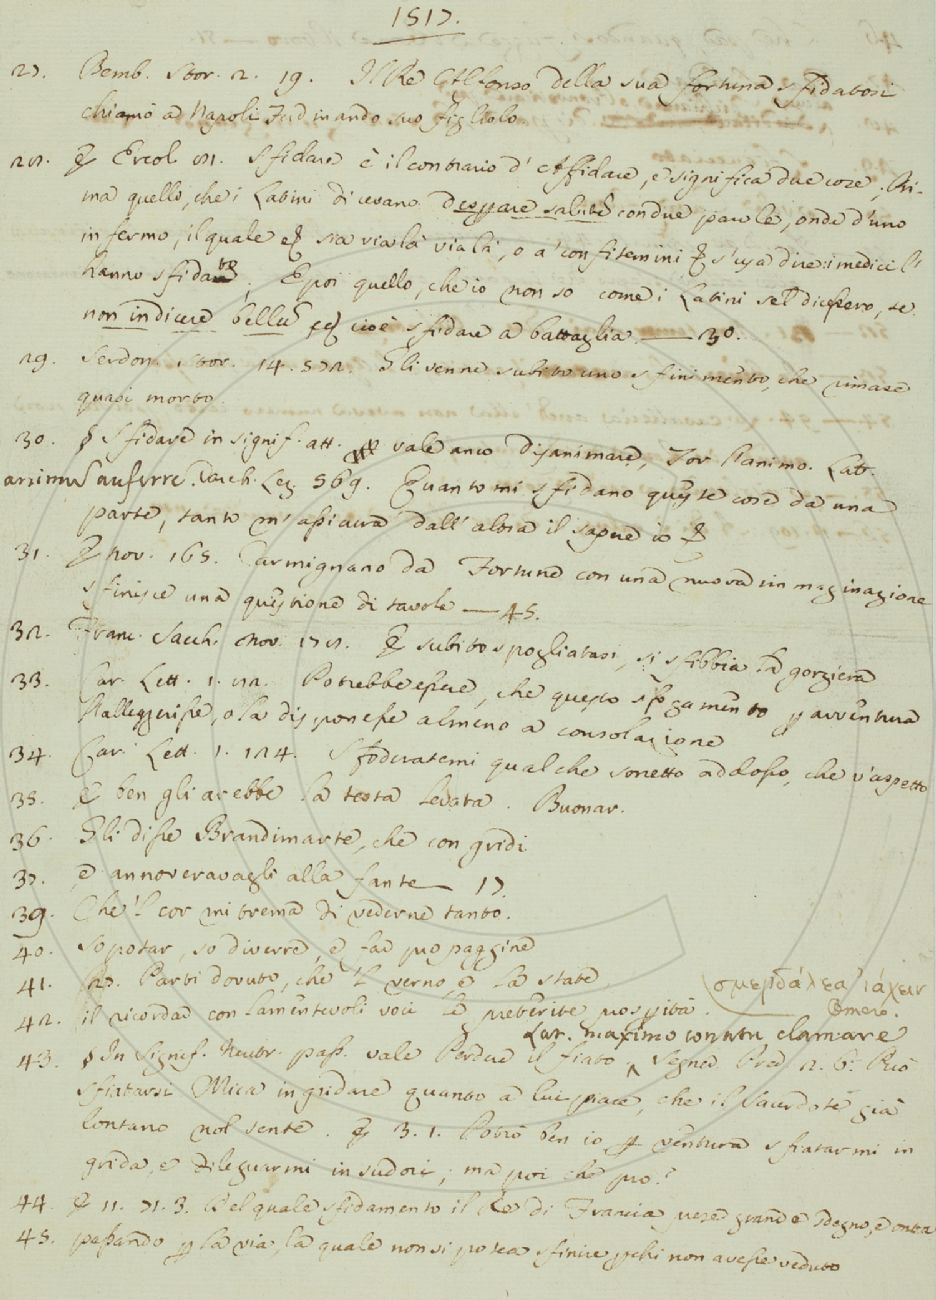 1517.
27. Bemb. Stor. 2. 19. Il Re Alfonso della sua fortuna sfidatosi
chiamò ad Napoli Ferdinando suo figliolo.
28. E Ercol. 81. Sfidare è il contrario d'Affidare, e significa due cose, Pri-
ma quello, che i Latini dicevano desperare salutē con due parole, onde d'uno
infermo, il quale sia via là via là, o a' confitemini s'usa dire: i medici l'
hanno sfidato; E poi quello, che io non so come i Latini sel dicessero, se
non indicere bellū cioè sfidare a battaglia — 30.
29. Serdon. Stor. 14. 572. Gli venne subito uno sfinimento, che rimase
quasi morto.
30. § Sfidare in signif. att. vale anco Disanimare, Tor l'animo. Lat.
animū auferre. Varch. Lez. 569. Quanto mi sfidano queste cose da una
parte, tanto m'assicura dall'altra il sapere io
31. E nov. 165. Carmignano da Fortune con una nuova immaginazione
sfinisce una questione di tavole — 45.
32. Franc. Sacch. nov. 178. E subito spogliatasi, si sfibbia la gorgiera
33. Car. Lett. 1. 82. Potrebbe essere, che questo sfogamento p avventura
l'alleggerisse, o la disponesse almeno a consolazione
34. Car. Lett. 1. 124. Sfoderatemi qualche sonetto addosso, che v'aspetto
35. E ben gli arebbe la testa levata. Buonar.
36. Gli disse Brandimarte, che con gridi
37. e annoveravagli alla fante — 17
39. Che 'l cor mi trema di vederne tanto.
40. So potar, so diverre, e far propaggine
41. Parti dovuto, che 'l verno e la state,
42. il ricordar con lamentevoli voci le preterite prosperità. σμερδαλέα ἰάχειν
Omero.
Lat. maximo conatu clamare
43. § In Signif. Neutr. pass. vale Perdere il fiato ^ Segner. Pred. 2. 6. Può
sfiatarsi Mica in gridare quanto a lui piace, che il Sacerdote già
lontano nol sente. E 3. 1. Potrò ben io p ventura sfiatarmi in
grida, e dileguarmi in sudori; ma poi che prò?
44. E 11. 71. 3. Del quale sfidamento il Re di Francia prese grande sdegno, e onta
45. passando p la via, la quale non si potea sfinire p chi non avesse veduto